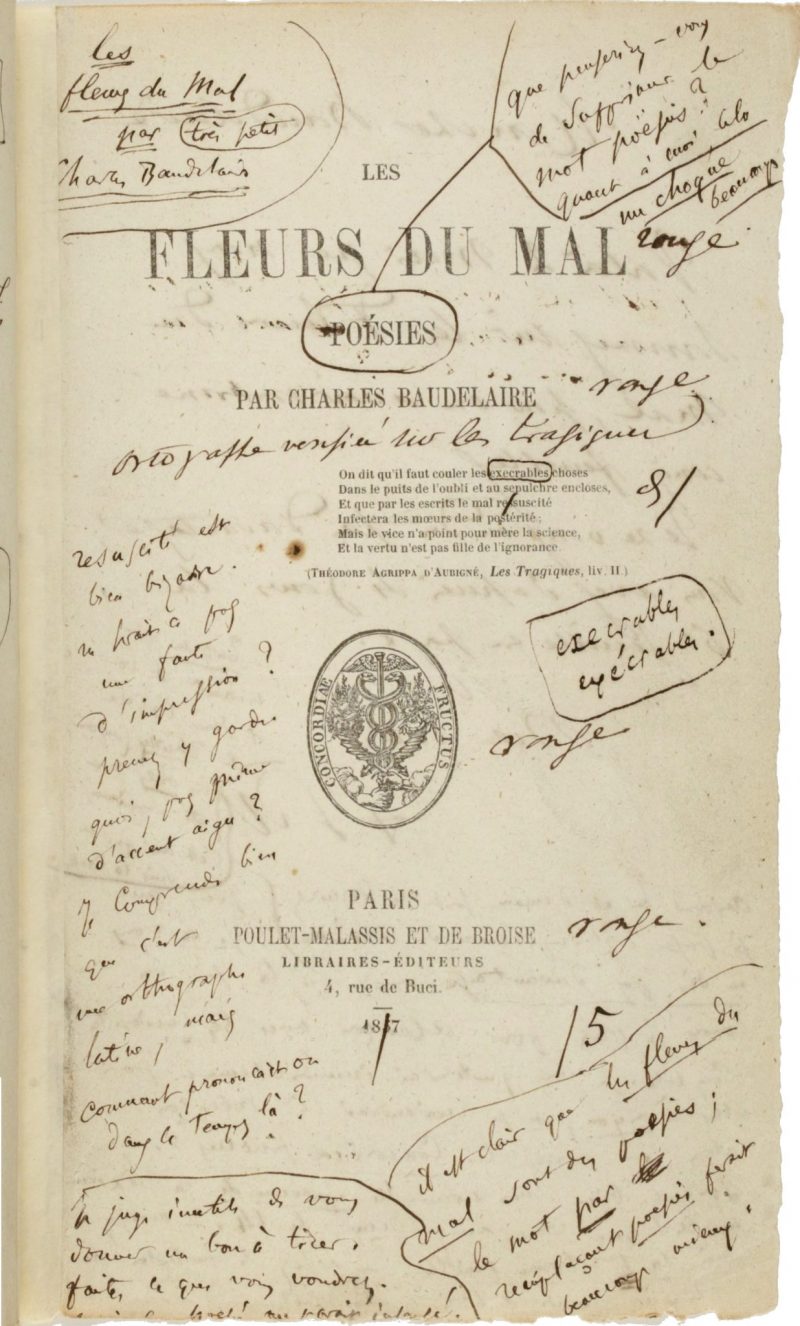 les
fleurs du Mal
par très petit
Charles Baudelaire
que penseriez-vous
de supprimer le
mot poësies?
quant à moi, cela
me choque
beaucoup
LES
FLEURS DU MAL
rouge.
POÉSIES
PAR CHARLES BAUDELAIRE
rouge
ortografe vérifiée sur les tragiques
On dit qu'il faut couler les execrables choses
Dans le puits de l'oubli et au sepulchre encloses,
Et que par les escrits le mal resuscité
Infectera les mœurs de la postérité;
Mais le vice n'a point pour mère la science,
Et la vertu n'est pas fille de l'ignorance.
(THÉODORE AGRIPPA D'AUBIGNÉ, Les Tragiques, liv. II.)
resuscité est
bien bizarre.
ne serait-ce pas
une faute
d'impression?
prenez y garde.
quoi, pas même
d'accent aigu?
je comprends bien
que c'est
une orthographe
latine, mais
comment prononçait-on
dans le temps là?
execrables
exécrables.
rouge
CONCORDIÆ FRUCTUS
PARIS
POULET-MALASSIS ET DE BROISE
rouge.
LIBRAIRES-ÉDITEURS
4, rue de Buci.
1857
/5
il est clair que les fleurs du
mal sont des poësies;
le mot par
remplaçant poësies ferait
beaucoup mieux.
Je juge inutile de vous
donner un bon à tirer.
faites ce que vous voudrez.